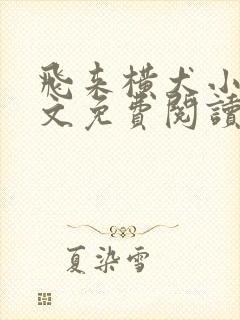 飛來橫犬小
文免費閱讀
夏染雪